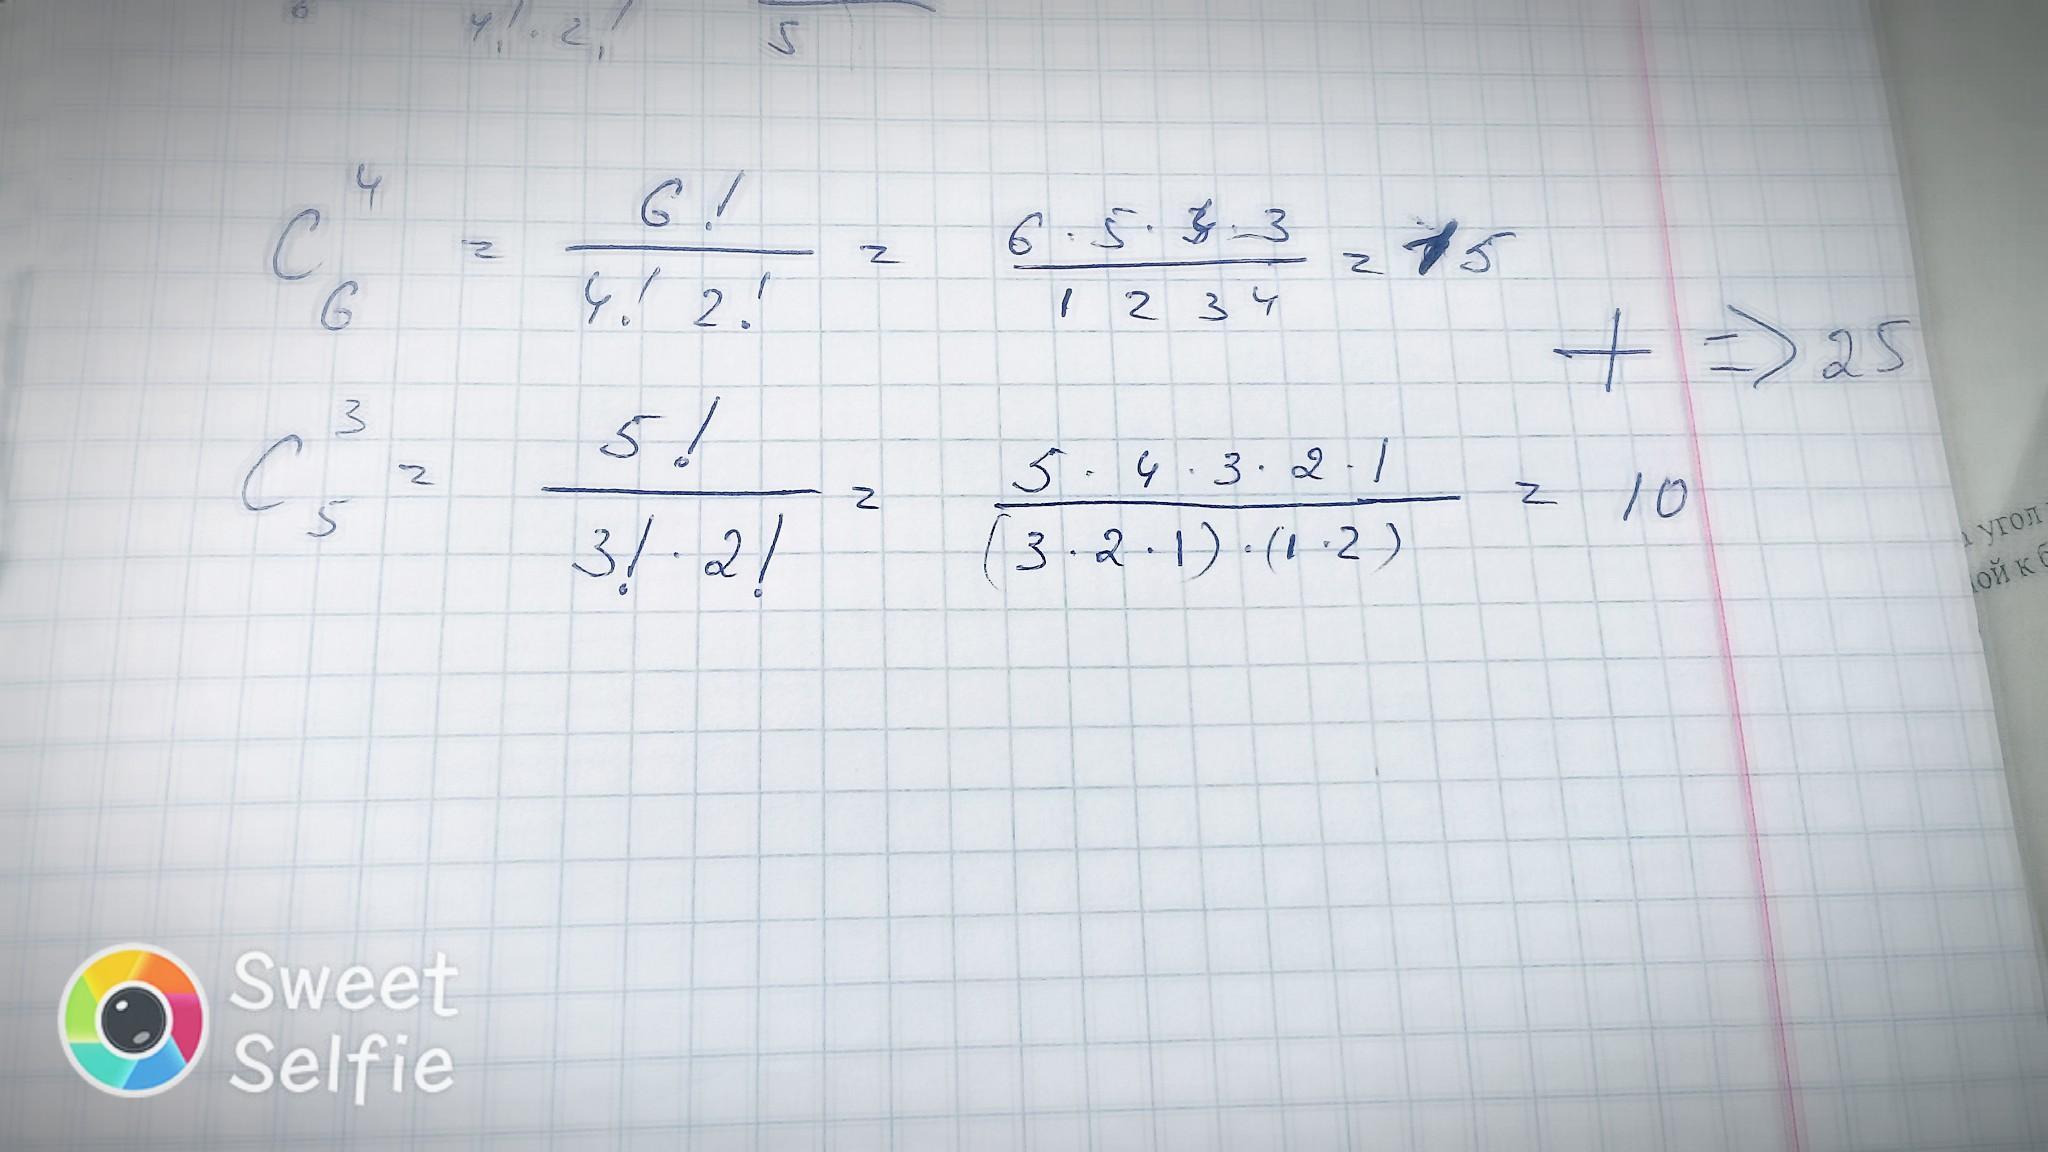 6 4! · 2! 5
C₆⁴ = 6! / 4! 2! = 6 · 5 · 4 · 3 / 1 2 3 4 = 15
+ => 25
C₅³ = 5! / 3! · 2! = 5 · 4 · 3 · 2 · 1 / (3 · 2 · 1) · (1 · 2) = 10
угол
ой к б
Sweet
Selfie